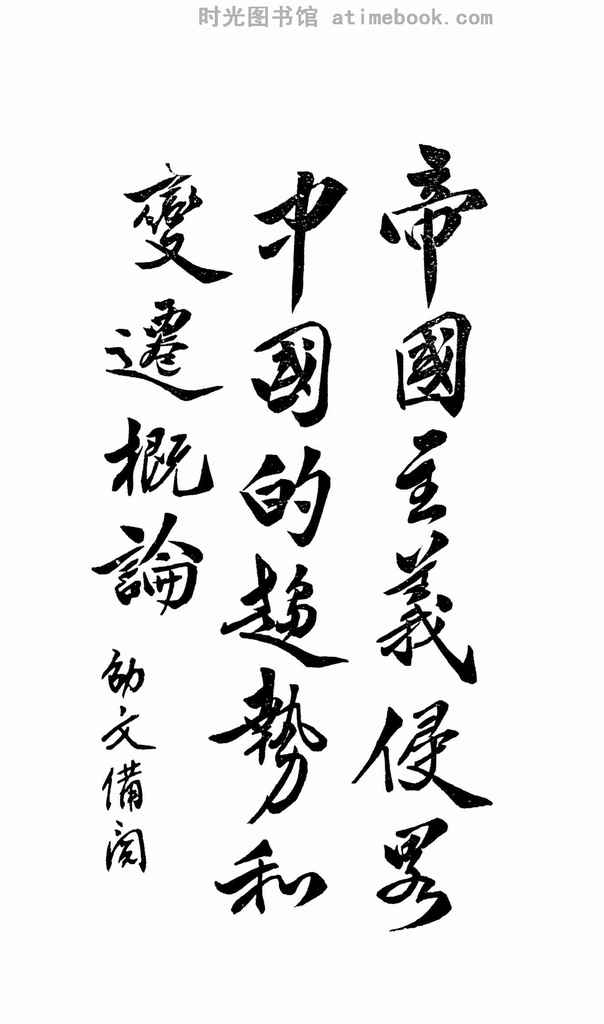 时光图书馆 atimebook.com
帝國主義侵畧
中國的趨勢和
變遷概論
劭文備閱